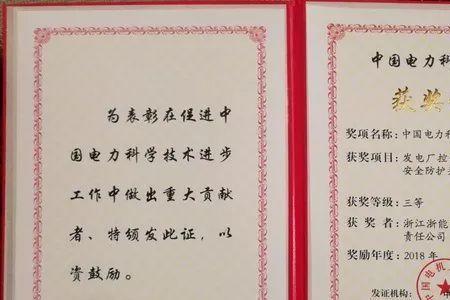 为表彰在促进中
国电力科学技术进步
工作中做出重大贡献
者、特颁发此证，以
资鼓励。
中国电力科
获奖
奖项名称：中国电力科
获奖项目：发电厂控
安全防护
获奖等级：三等
获 奖 者：浙江浙能
责任公司
奖励年度：2018
发证机构：
国电机